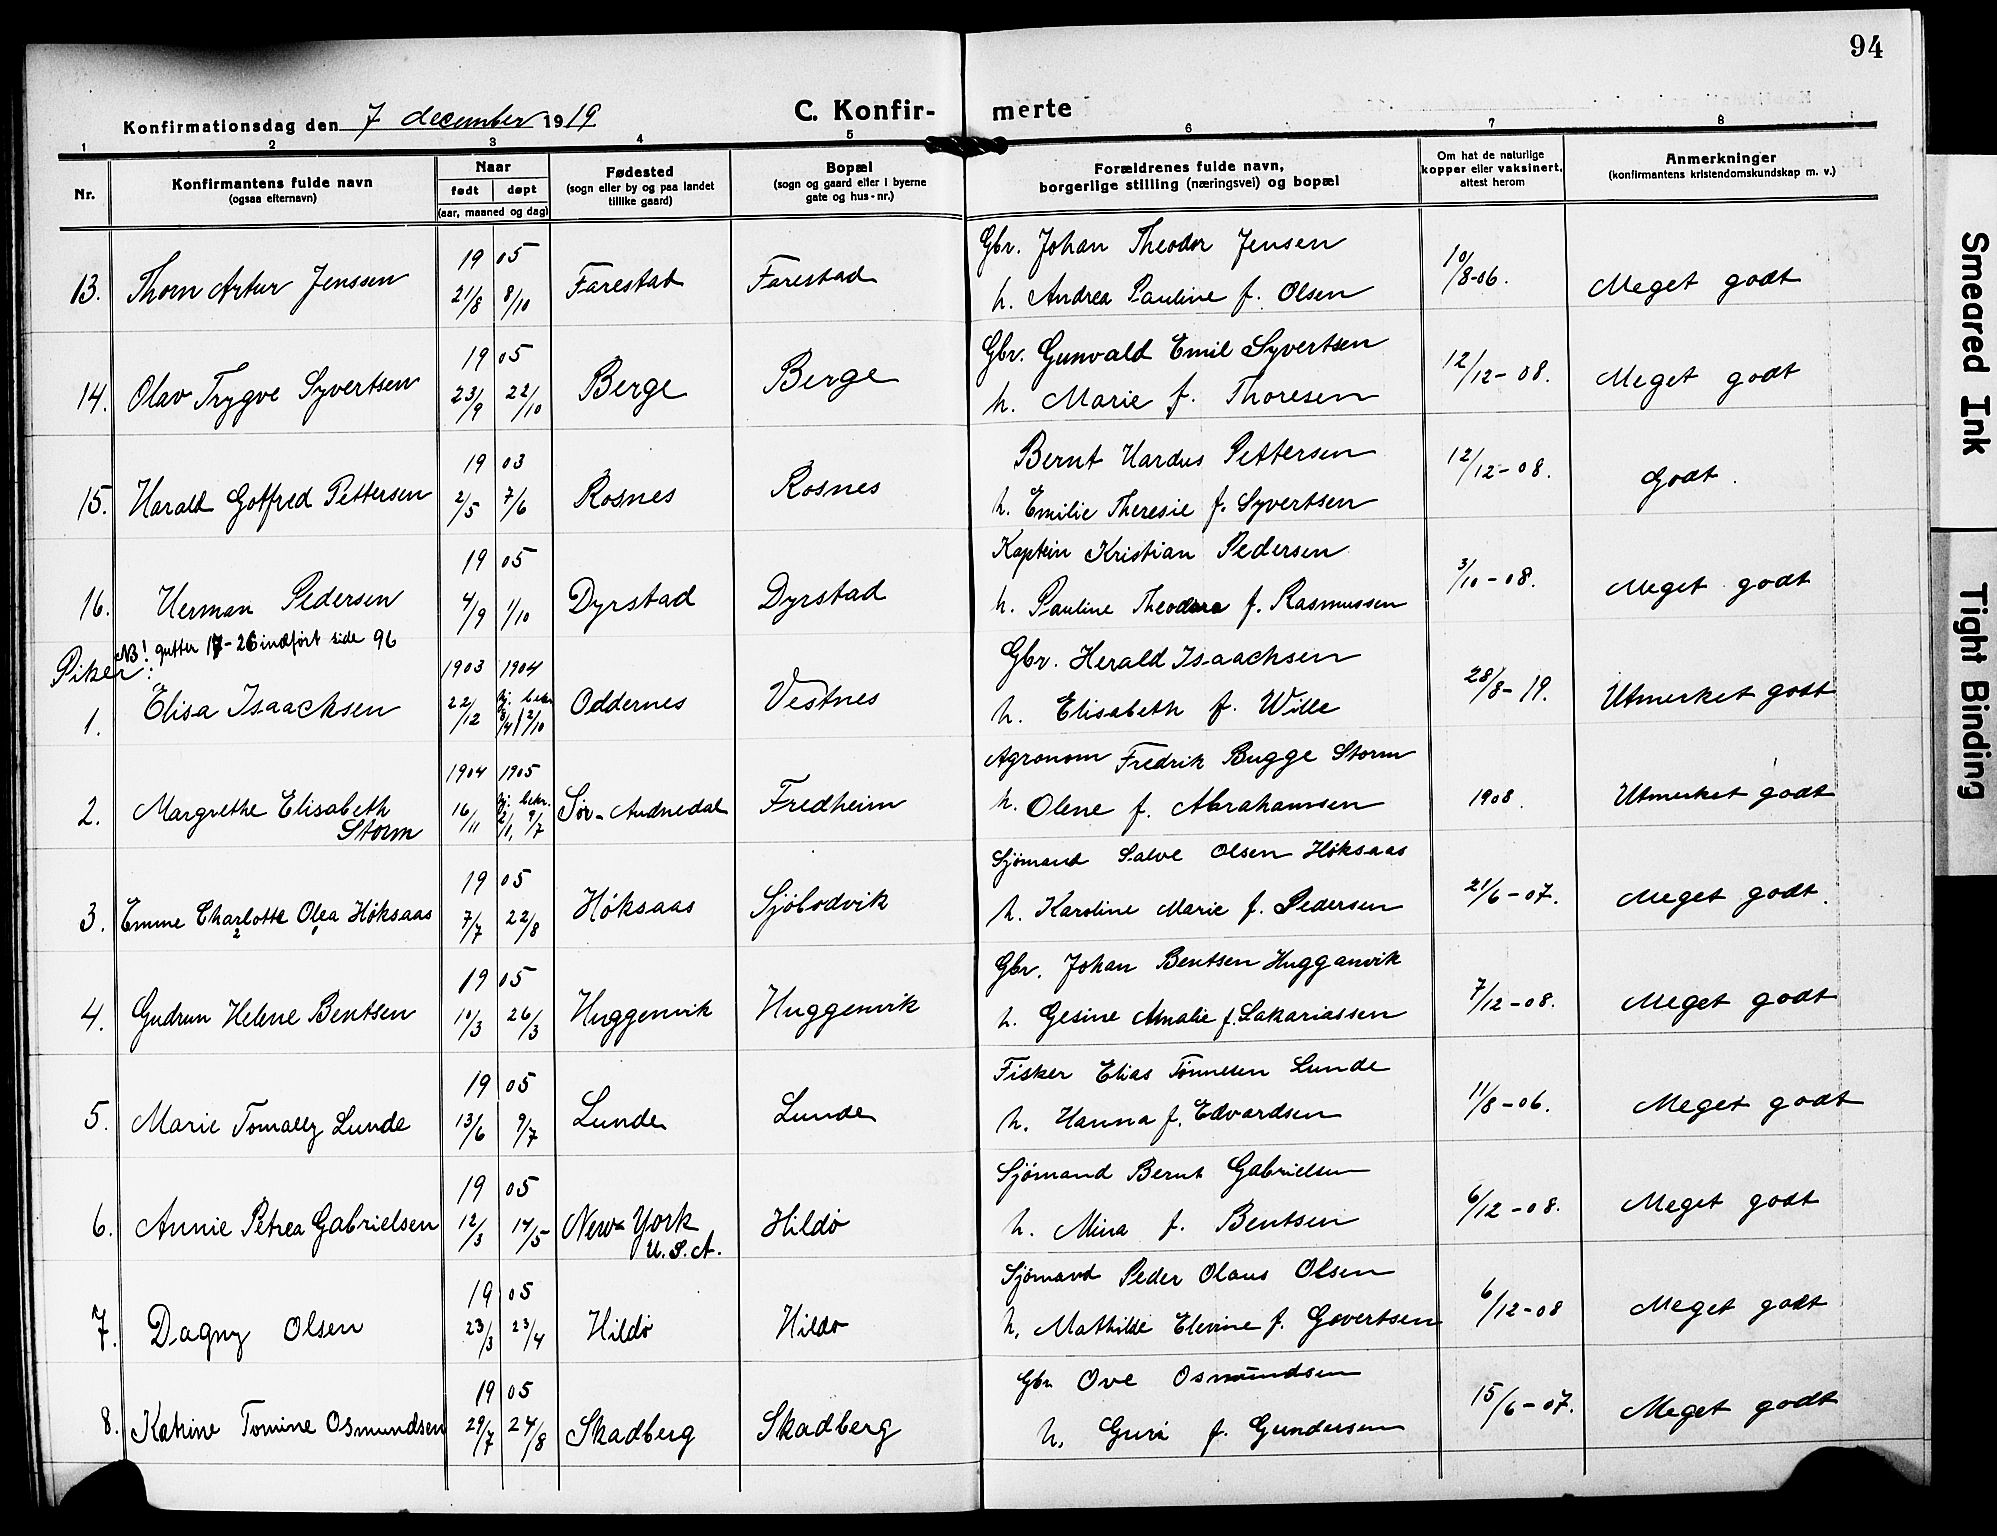 94
Konfirmationsdag den 7 december 1919
C. Konfirmerte
1 2 3 4 5 6 7 8
Nr.
Konfirmantens fulde navn
(ogsaa efternavn)
Naar
født døpt
(aar, maaned og dag)
Fødested
(sogn eller by og paa landet
tillike gaard)
Bopæl
(sogn og gaard eller i byerne
gate og hus-nr.)
Forældrenes fulde navn,
borgerlige stilling (næringsvei) og bopæl
Om hat de naturlige
kopper eller vaksinert,
attest herom
Anmerkninger
(konfirmantens kristendomskundskap m. v.)
19 05 Gbr. Johan Theodor Jensen
13. Thorn Artur Jenssen 21/8 8/10 Farestad Farestad h. Andrea Pauline f. Olsen 10/8-06. Meget godt
19 05 Gbr. Gunvald Emil Syvertsen
14. Olav Trygve Syvertsen 23/9 22/10 Berge Berge h. Marie f. Thoresen 12/12-08. Meget godt
19 03 Bernt Hardus Pettersen
15. Harald Gotfred Pettersen 2/5 7/6 Rosnes Rosnes h. Emilie Theresie f. Syvertsen 12/12-08. Godt.
19 05 Kaptein Kristian Pedersen
16. Herman Pedersen 4/9 1/10 Dyrstad Dyrstad h. Pauline Theodora f. Rasmussen 3/10-08. Meget godt
NB! gutter 17-26 indført side 96
Piker:
1903 1904 Gbr. Herald Isaachsen
1. Elisa Isaachsen 22/12 hj. bekr. 3/4 2/10 Oddernes Vestnes h. Elisabeth f. Wille 28/8-19. Utmerket godt
1904 1905 Agronom Fredrik Bugge Storm
2. Margrethe Elisabeth 16/11 hj. bekr. 2/1, 9/7 Sør-Audnedal Fredheim h. Olene f. Abrahamsen 1908. Utmerket godt
Storm
19 05 Sjømand Salve Olsen Høksaas
3. Emme Charlotte Olea Høksaas 7/7 22/8 Høksaas Sjöbodvik h. Karoline Marie f. Pedersen 21/6-07. Meget godt.
19 05 Gbr. Johan Bentsen Hugganvik
4. Gudrun Helene Bentsen 10/3 26/3 Huggenvik Huggenvik h. Gesine Amalie f. Sakariassen 7/12-08. Meget godt
19 05 Fisker Elias Tønnesen Lunde
5. Marie Tomally Lunde 13/6 9/7 Lunde Lunde h. Hanna f. Edvardsen 11/8-06. Meget godt
19 05 Sjømand Bernt Gabrielsen
6. Annie Petrea Gabrielsen 12/3 14/5 New-York Hildø h. Mina f. Bentsen 6/12-08. Meget godt
U.S.A.
19 05 Sjømand Peder Olaus Olsen
7. Dagny Olsen 23/3 23/4 Hildø Hildø h. Mathilde Elevine f. Govertsen 6/12-08 Meget godt
19 05 Gbr Ove Osmundsen
8. Katrine Tomine Osmundsen 29/7 24/8 Skadberg Skadberg h. Guri f. Gundersen 15/6-07. Meget godt
Smeared Ink
Tight Binding